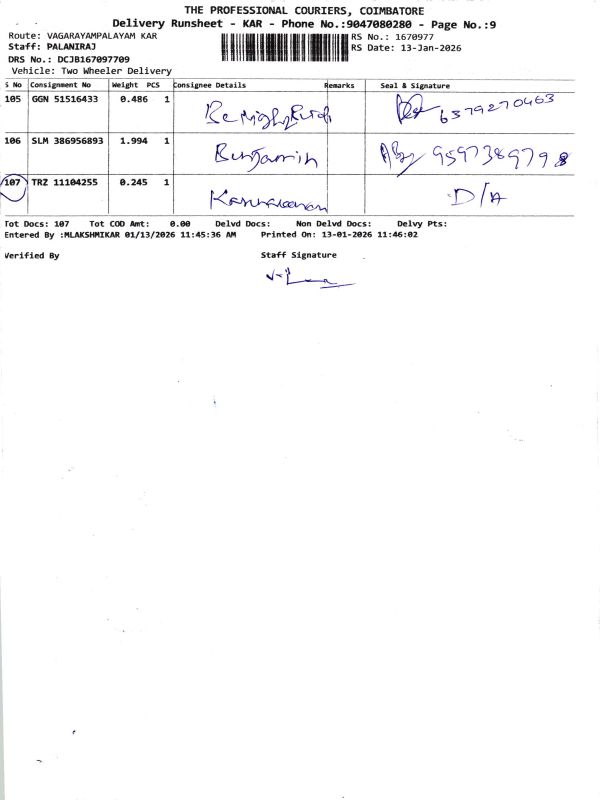 THE PROFESSIONAL COURIERS, COIMBATORE
Delivery Runsheet - KAR - Phone No.:9047080280 - Page No.:9
Route: VAGARAYAMPALAYAM KAR RS No.: 1670977
Staff: PALANIRAJ RS Date: 13-Jan-2026
DRS No.: DCJB167097709
Vehicle: Two Wheeler Delivery
S No Consignment No Weight PCS Consignee Details Remarks Seal & Signature
105 GGN 51516433 0.486 1 6379270463
106 SLM 386956893 1.994 1 Benjamin 9597389798
107 TRZ 11104255 0.245 1 D/A
Tot Docs: 107 Tot COD Amt: 0.00 Delvd Docs: Non Delvd Docs: Delvy Pts:
Entered By :MLAKSHMIKAR 01/13/2026 11:45:36 AM Printed On: 13-01-2026 11:46:02
Verified By Staff Signature